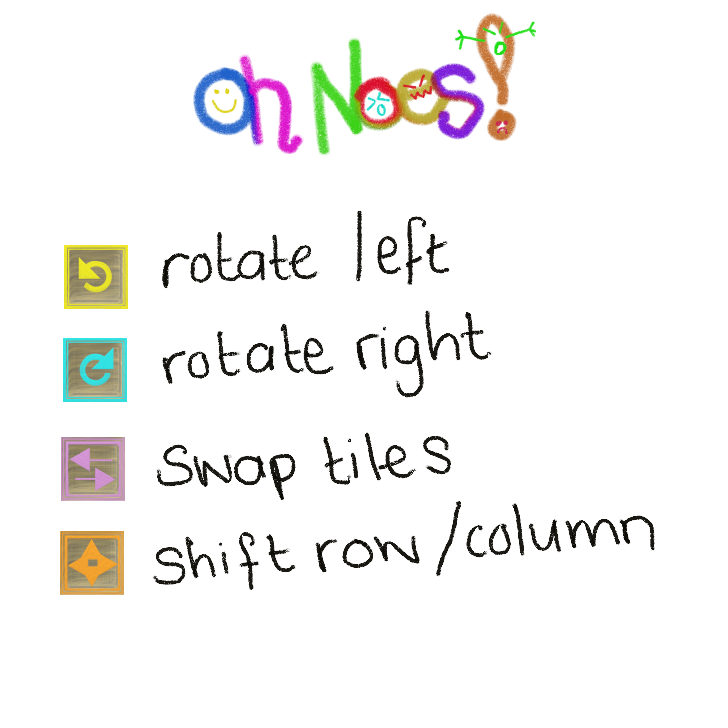 oh Noes!
rotate left
rotate right
swap tiles
shift row/column